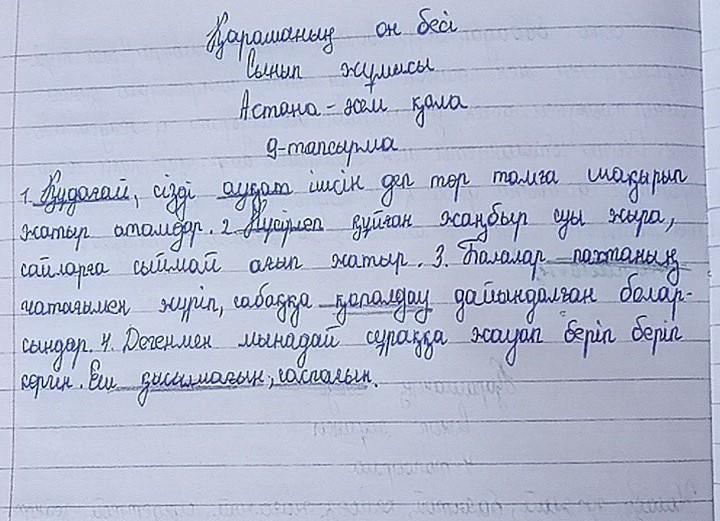 Қарашаның он бесі
Сынып жұмысы
Астана - әсем қала
9-тапсырма
1. Құдағай, сізді ауқат ішсін деп төр тамға шақырып
жатыр аталдар. 2. Нүсірлеп құйған жаңбыр суы жыра,
сайларға сыймай ағып жатыр. 3. Балалар пахтаның
чатағымен жүріп, сабаққа қапалдау дайындалған болар-
сыңдар. 4. Дегенмен мынадай сұраққа жауап беріп беріп
көрин. Еш қысылмағын, саспағын.